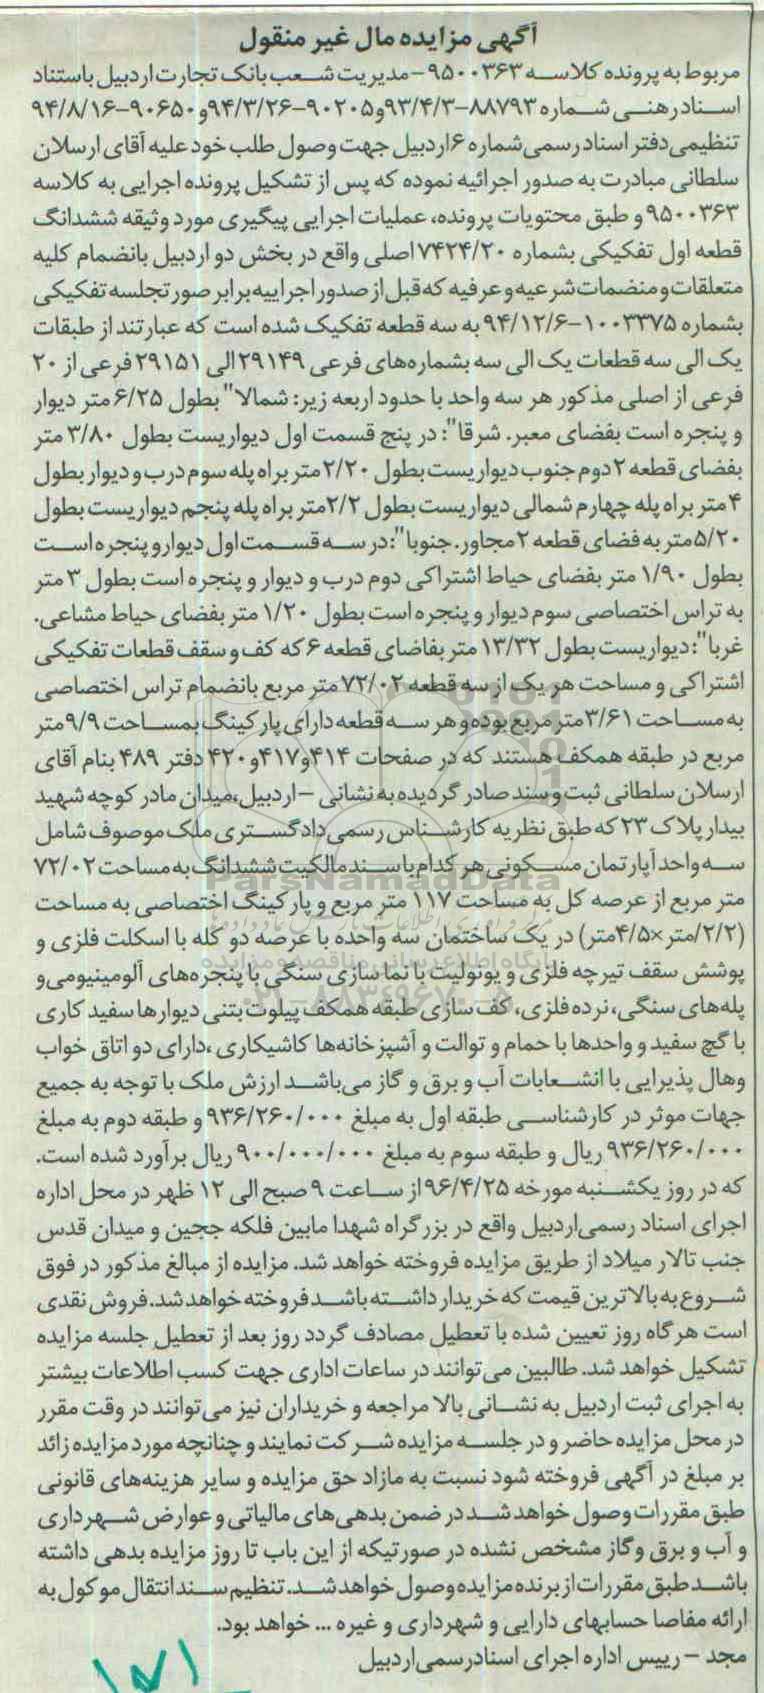 آگهی مزایده مال غیر منقول
مربوط به پرونده کلاسه ۹۵۰۰۳۶۳-مدیریت شعب بانک تجارت اردبیل باستناد
اسناد رهنی شماره ۸۸۷۹۳-۹۳/۴/۳و۹۰۲۰۵-۹۴/۳/۲۶و۹۰۶۵۰-۹۴/۸/۱۶
تنظیمی دفتر اسناد رسمی شماره ۶اردبیل جهت وصول طلب خود علیه آقای ارسلان
سلطانی مبادرت به صدور اجرائیه نموده که پس از تشکیل پرونده اجرایی به کلاسه
۹۵۰۰۳۶۳ و طبق محتویات پرونده، عملیات اجرایی پیگیری مورد وثیقه ششدانگ
قطعه اول تفکیکی بشماره ۷۴۲۴/۲۰اصلی واقع در بخش دو اردبیل بانضمام کلیه
متعلقات و منضمات شرعیه و عرفیه که قبل از صدور اجراییه برابر صورتجلسه تفکیکی
بشماره ۱۰۰۳۳۷۵-۹۴/۱۲/۶ به سه قطعه تفکیک شده است که عبارتند از طبقات
یک الی سه قطعات یک الی سه بشماره‌های فرعی ۲۹۱۴۹الی ۲۹۱۵۱ فرعی از ۲۰
فرعی از اصلی مذکور هر سه واحد با حدود اربعه زیر: شمالا" بطول ۶/۲۵ متر دیوار
و پنجره است بفضای معبر. شرقا": در پنج قسمت اول دیواریست بطول ۳/۸۰ متر
بفضای قطعه ۲ دوم جنوب دیواریست بطول ۲/۲۰ متر براه پله سوم درب و دیوار بطول
۴ متر براه پله چهارم شمالی دیواریست بطول ۲/۲متر براه پله پنجم دیواریست بطول
۵/۲۰متر به فضای قطعه ۲مجاور. جنوبا": در سه قسمت اول دیوار و پنجره است
بطول ۱/۹۰ متر بفضای حیاط اشتراکی دوم درب و دیوار و پنجره است بطول ۳ متر
به تراس اختصاصی سوم دیوار و پنجره است بطول ۱/۲۰ متر بفضای حیاط مشاعی.
غربا": دیواریست بطول ۱۳/۳۲ متر بفاضای قطعه ۶ که کف و سقف قطعات تفکیکی
اشتراکی و مساحت هر یک از سه قطعه ۷۲/۰۲ متر مربع بانضمام تراس اختصاصی
به مساحت ۳/۶۱ متر مربع بوده و هر سه قطعه دارای پارکینگ بمساحت ۹/۹متر
مربع در طبقه همکف هستند که در صفحات ۴۱۴و۴۱۷و۴۲۰ دفتر ۴۸۹ بنام آقای
ارسلان سلطانی ثبت و سند صادر گردیده به نشانی -اردبیل،میدان مادر کوچه شهید
بیدار پلاک ۲۳ که طبق نظریه کارشناس رسمی دادگستری ملک موصوف شامل
سه واحد آپارتمان مسکونی هر کدام با سند مالکیت ششدانگ به مساحت ۷۲/۰۲
متر مربع از عرصه کل به مساحت ۱۱۷ متر مربع و پارکینگ اختصاصی به مساحت
(۲/۲/متر×۴/۵متر) در یک ساختمان سه واحده با عرصه دو کله با اسکلت فلزی و
پوشش سقف تیرچه فلزی و یونولیت با نما سازی سنگی با پنجره‌های آلومینیومی و
پله‌های سنگی، نرده فلزی، کف سازی طبقه همکف پیلوت بتنی دیوارها سفید کاری
با گچ سفید و واحدها با حمام و توالت و آشپزخانه‌ها کاشیکاری ،دارای دو اتاق خواب
وهال پذیرایی با انشعابات آب و برق و گاز می‌باشد ارزش ملک با توجه به جمیع
جهات موثر در کارشناسی طبقه اول به مبلغ ۹۳۶/۲۶۰/۰۰۰ و طبقه دوم به مبلغ
۹۳۶/۲۶۰/۰۰۰ ریال و طبقه سوم به مبلغ ۹۰۰/۰۰۰/۰۰۰ ریال برآورد شده است.
که در روز یکشنبه مورخه ۹۶/۴/۲۵از ساعت ۹ صبح الی ۱۲ ظهر در محل اداره
اجرای اسناد رسمی اردبیل واقع در بزرگراه شهدا مابین فلکه ججین و میدان قدس
جنب تالار میلاد از طریق مزایده فروخته خواهد شد. مزایده از مبالغ مذکور در فوق
شروع به بالاترین قیمت که خریدار داشته باشد فروخته خواهد شد. فروش نقدی
است هرگاه روز تعیین شده با تعطیل مصادف گردد روز بعد از تعطیل جلسه مزایده
تشکیل خواهد شد. طالبین می‌توانند در ساعات اداری جهت کسب اطلاعات بیشتر
به اجرای ثبت اردبیل به نشانی بالا مراجعه و خریداران نیز می‌توانند در وقت مقرر
در محل مزایده حاضر و در جلسه مزایده شرکت نمایند و چنانچه مورد مزایده زائد
بر مبلغ در آگهی فروخته شود نسبت به مازاد حق مزایده و سایر هزینه‌های قانونی
طبق مقررات وصول خواهد شد در ضمن بدهی‌های مالیاتی و عوارض شهرداری
و آب و برق وگاز مشخص نشده در صورتیکه از این باب تا روز مزایده بدهی داشته
باشد طبق مقررات از برنده مزایده وصول خواهد شد. تنظیم سند انتقال موکول به
ارائه مفاصا حسابهای دارایی و شهرداری و غیره ... خواهد بود.
مجد - رییس اداره اجرای اسناد رسمی اردبیل
ParsNamadData
پایگاه اطلاع رسانی مناقصه و مزایده